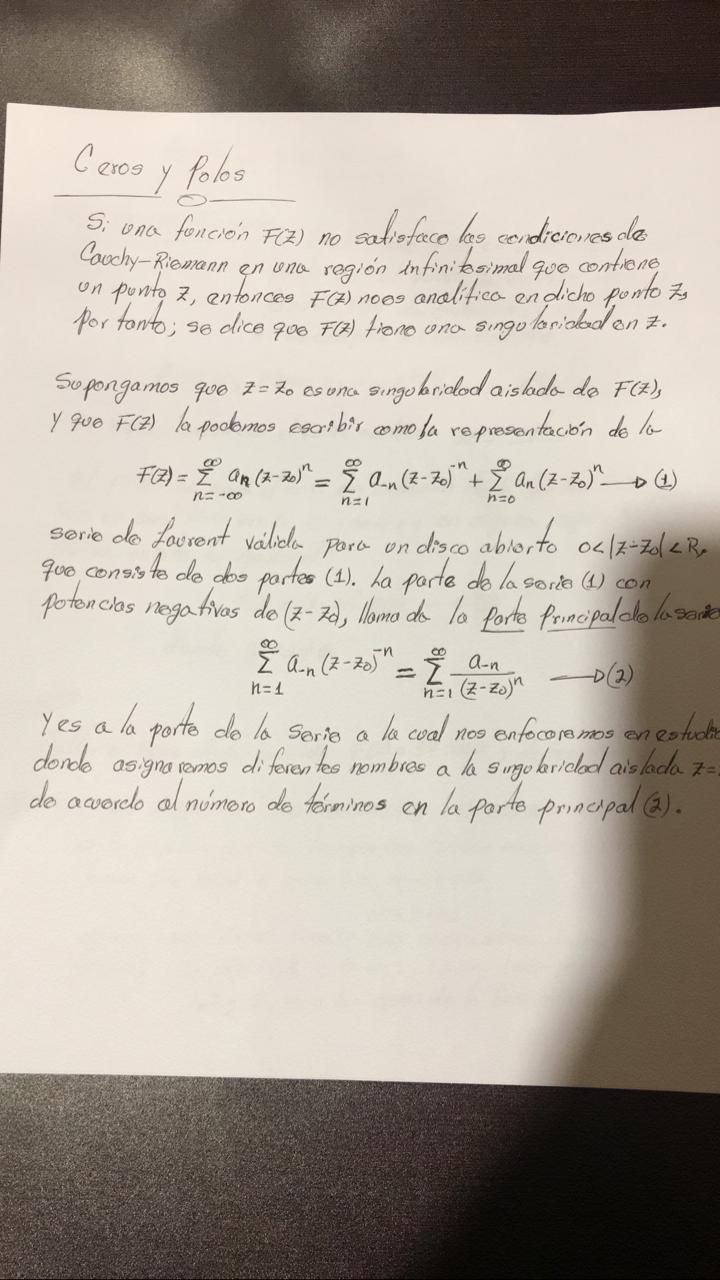 Ceros y Polos
Si una función F(z) no satisface las condiciones de
Cauchy-Riemann en una región infinitesimal que contiene
un punto z, entonces F(z) no es analítica en dicho punto z,
por tanto; se dice que F(z) tiene una singularidad en z.
Supongamos que z = z₀ es una singularidad aislada de F(z),
y que F(z) la podemos escribir como la representación de la
F(z) = ∑_{n=-∞}^{∞} aₙ (z-z₀)ⁿ = ∑_{n=1}^{∞} a₋ₙ (z-z₀)⁻ⁿ + ∑_{n=0}^{∞} aₙ (z-z₀)ⁿ → (1)
serie de Laurent válida para un disco abierto 0<|z-z₀|<R,
que consiste de dos partes (1). La parte de la serie (1) con
potencias negativas de (z-z₀), llamada la parte principal de la serie
∑_{n=1}^{∞} a₋ₙ (z-z₀)⁻ⁿ = ∑_{n=1}^{∞} a₋ₙ/(z-z₀)ⁿ → (2)
Y es a la parte de la serie a la cual nos enfocaremos en estudi
donde asignaremos diferentes nombres a la singularidad aislada z=
de acuerdo al número de términos en la parte principal (2).